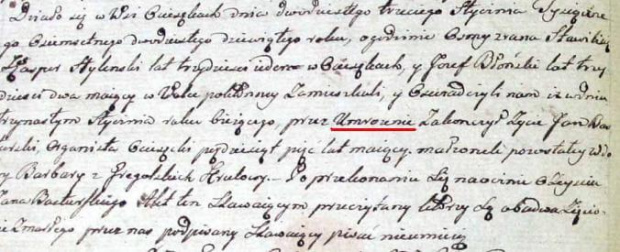 Działo się w Wsi Cieszkach dnia dwudziestego trzeciego Stycznia Tysiączne
go Osiemsetnego dwudziestego dziewiątego roku, o godzinie Osmy zrana Stawili
Kasper Stylinski lat trzydzieści ieden w Cieszkach, y Jozef Błoński lat trzy
dzieści dwa maiący w Wolu połebnney Zamieszkali, y Oświadczyli nam iż w dniu
trzynastym Stycznia roku bieżącego, przez Umrozenie Zakonczył Życie Jan Ba
turski, Organista Cieszęcki pięćdziesiąt pięć lat maiący, małzonek powstały wdo
y Barbary z Hrulowy. Po przekonaniu się naocznie o Zeysciu
Jana Baturskiego Akt ten Stawaiącym przeczytany ktory są obadwa
Zmarłego przez nas podpisany Stawaiący pisać nieumieią